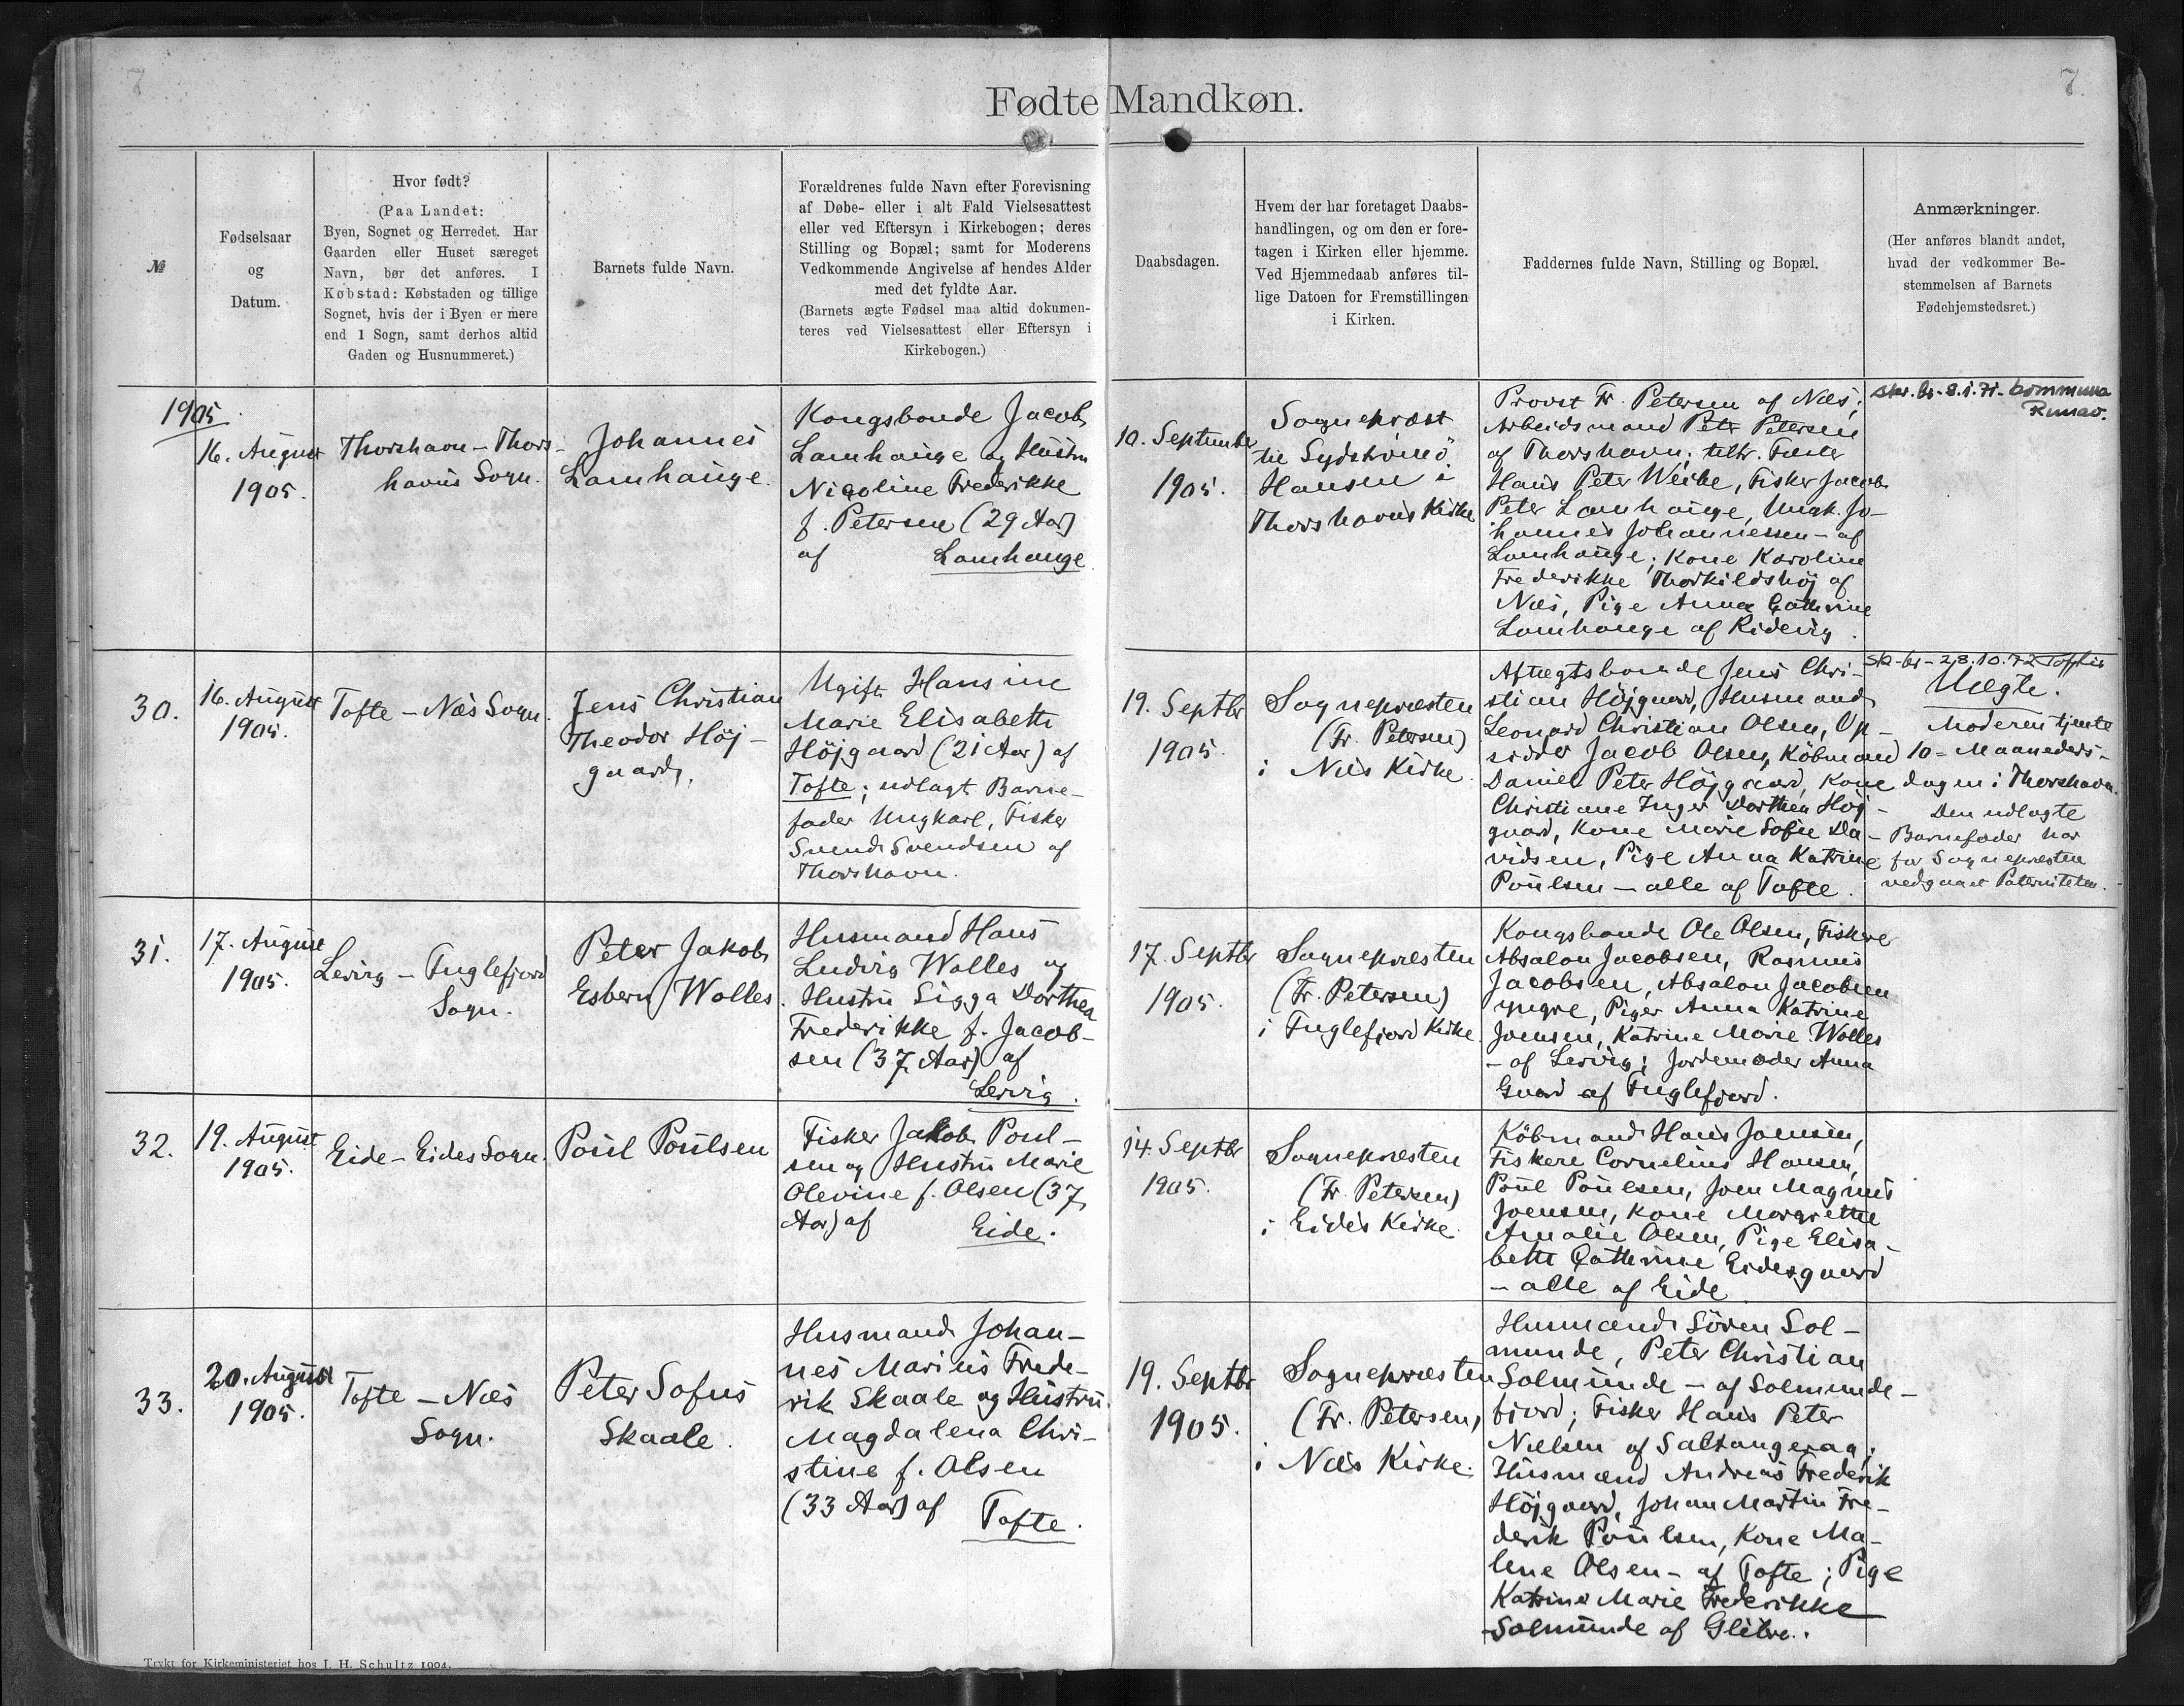 7
7.
Fødte Mandkøn.
№
Fødselsaar
og
Datum.
Hvor født?
(Paa Landet:
Byen, Sognet og Herredet. Har
Gaarden eller Huset særeget
Navn, bør det anføres. I
Købstad: Købstaden og tillige
Sognet, hvis der i Byen er mere
end 1 Sogn, samt derhos altid
Gaden og Husnummeret.)
Barnets fulde Navn.
Forældrenes fulde Navn efter Forevisning
af Døbe- eller i alt Fald Vielsesattest
eller ved Eftersyn i Kirkebogen; deres
Stilling og Bopæl; samt for Moderens
Vedkommende Angivelse af hendes Alder
med det fyldte Aar.
(Barnets ægte Fødsel maa altid dokumen-
teres ved Vielsesattest eller Eftersyn i
Kirkebogen.)
Daabsdagen.
Hvem der har foretaget Daabs-
handlingen, og om den er fore-
tagen i Kirken eller hjemme.
Ved Hjemmedaab anføres til-
lige Datoen for Fremstillingen
i Kirken.
Faddernes fulde Navn, Stilling og Bopæl.
Anmærkninger.
(Her anføres blandt andet,
hvad der vedkommer Be-
stemmelsen af Barnets
Fødehjemstedsret.)
1905.
16. August
1905.
Thorshavn - Thors-
havns Sogn.
Johannes
Lamhauge.
Kongsbonde Jacob
Lamhauge og Hustru
Nicoline Frederikke
f. Petersen (29 Aar)
af Lamhauge
10. September
1905.
Sognepræst
til Sydströmö
Hansen i
Thorshavns Kirke
Provst Fr. Petersen af Næs;
Arbeidsmand Petr Petersen
af Thorshavn;
Hans Peter Weihe, Fisker Jacob
Peter Lamhauge, Ungk. Jo-
hannes Johannessen - af
Lamhauge; Kone Karoline
Frederikke Thorkildshöj af
Næs, Pige Anna Cathrine
Lamhauge af Ridevig.
skr. br. 8.1.71. kommuna
30.
16. August
1905.
Tofte - Næs Sogn.
Jens Christian
Theodor Höj-
gaard.
Ugift Hansine
Marie Elisabeth
Höjgaard (21 Aar) af
Tofte; udlagt Barne-
fader Ungkarl, Fisker
Svend Svendsen af
Thorshavn.
19. Septbr
1905.
Sognepræsten
(Fr. Petersen)
i Næs Kirke.
Aftægtsbonde Jens Chri-
stian Höjgaard, Husmand
Leonard Christian Olsen, Op-
sidder Jacob Olsen, Købmand
Daniel Peter Höjgaard, Kone
Christiane Inger Dorthea Höj-
gaard, Kone Marie Sofie Da-
vidsen, Pige Anna Katrine
Poulsen - alle af Tofte.
sk-br-28.10.72 Toftir
Uægte.
Moderen tjente
10-Maaneders-
dagen i Thorshavn.
Den udlagte
Barnefader har
for Sognepræsten
vedgaaet Paterniteten.
31.
17. August
1905.
Lervig - Fuglefjord
Sogn.
Peter Jakob
Esbern Wolles.
Husmand Hans
Ludvig Wolles og
Hustru Sigga Dorthea
Frederikke f. Jacob-
sen (37 Aar) af
Lervig.
17. Septbr
1905.
Sognepræsten
(Fr. Petersen)
i Fuglefjord Kirke.
Kongsbonde Ole Olsen, Fiskere
Absalon Jacobsen, Rasmus
Jacobsen, Absalon Jacobsen
yngre, Piger Anna Katrine
Joensen, Katrine Marie Wolles
- af Lervig; Jordemoder Anna
Gaard af Fuglefjord.
32.
19. August
1905.
Eide - Eides Sogn.
Poul Poulsen
Fisker Jakob Poul-
sen og Hustru Marie
Olevine f. Olsen (37
Aar) af Eide.
14. Septbr
1905.
Sognepræsten
(Fr. Petersen)
i Eides Kirke.
Købmand Hans Joensen,
Fiskere Cornelius Hansen,
Poul Poulsen, Joen Magnus
Joensen, Kone Margrethe
Amalie Olsen, Pige Elisa-
beth Cathrine Eidesgaard
- alle af Eide
33.
20. August
1905.
Tofte - Næs
Sogn.
Peter Sofus
Skaale.
Husmand Johan-
nes Marius Frede-
rik Skaale og Hustru
Magdalena Chri-
stine f. Olsen
(33 Aar) af Tofte.
19. Septbr
1905.
Sognepræsten
(Fr. Petersen)
i Næs Kirke.
Husmænd Sören Sol-
munde, Peter Christian
Solmunde - af Solmunde-
fjord; Fisker Hans Peter
Nielsen af Saltangeraa;
Husmænd Andreas Frederik
Höjgaard, Johan Martin Fre-
derik Poulsen, Kone Ma-
lene Olsen - af Tofte; Pige
Katrine Marie Frederikke
Solmunde af Glibre.
Trykt for Kirkeministeriet hos J. H. Schultz 1904.